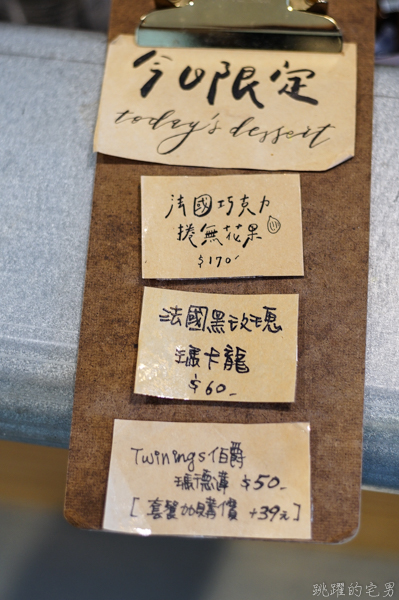 今日限定
today's dessert
法國巧克力
捲無花果
$170
法國黑玫瑰
瑪卡龍
$60
Twinings伯爵
瑪德蓮 $50
[套餐加購價 +39元]
跳躍的宅男